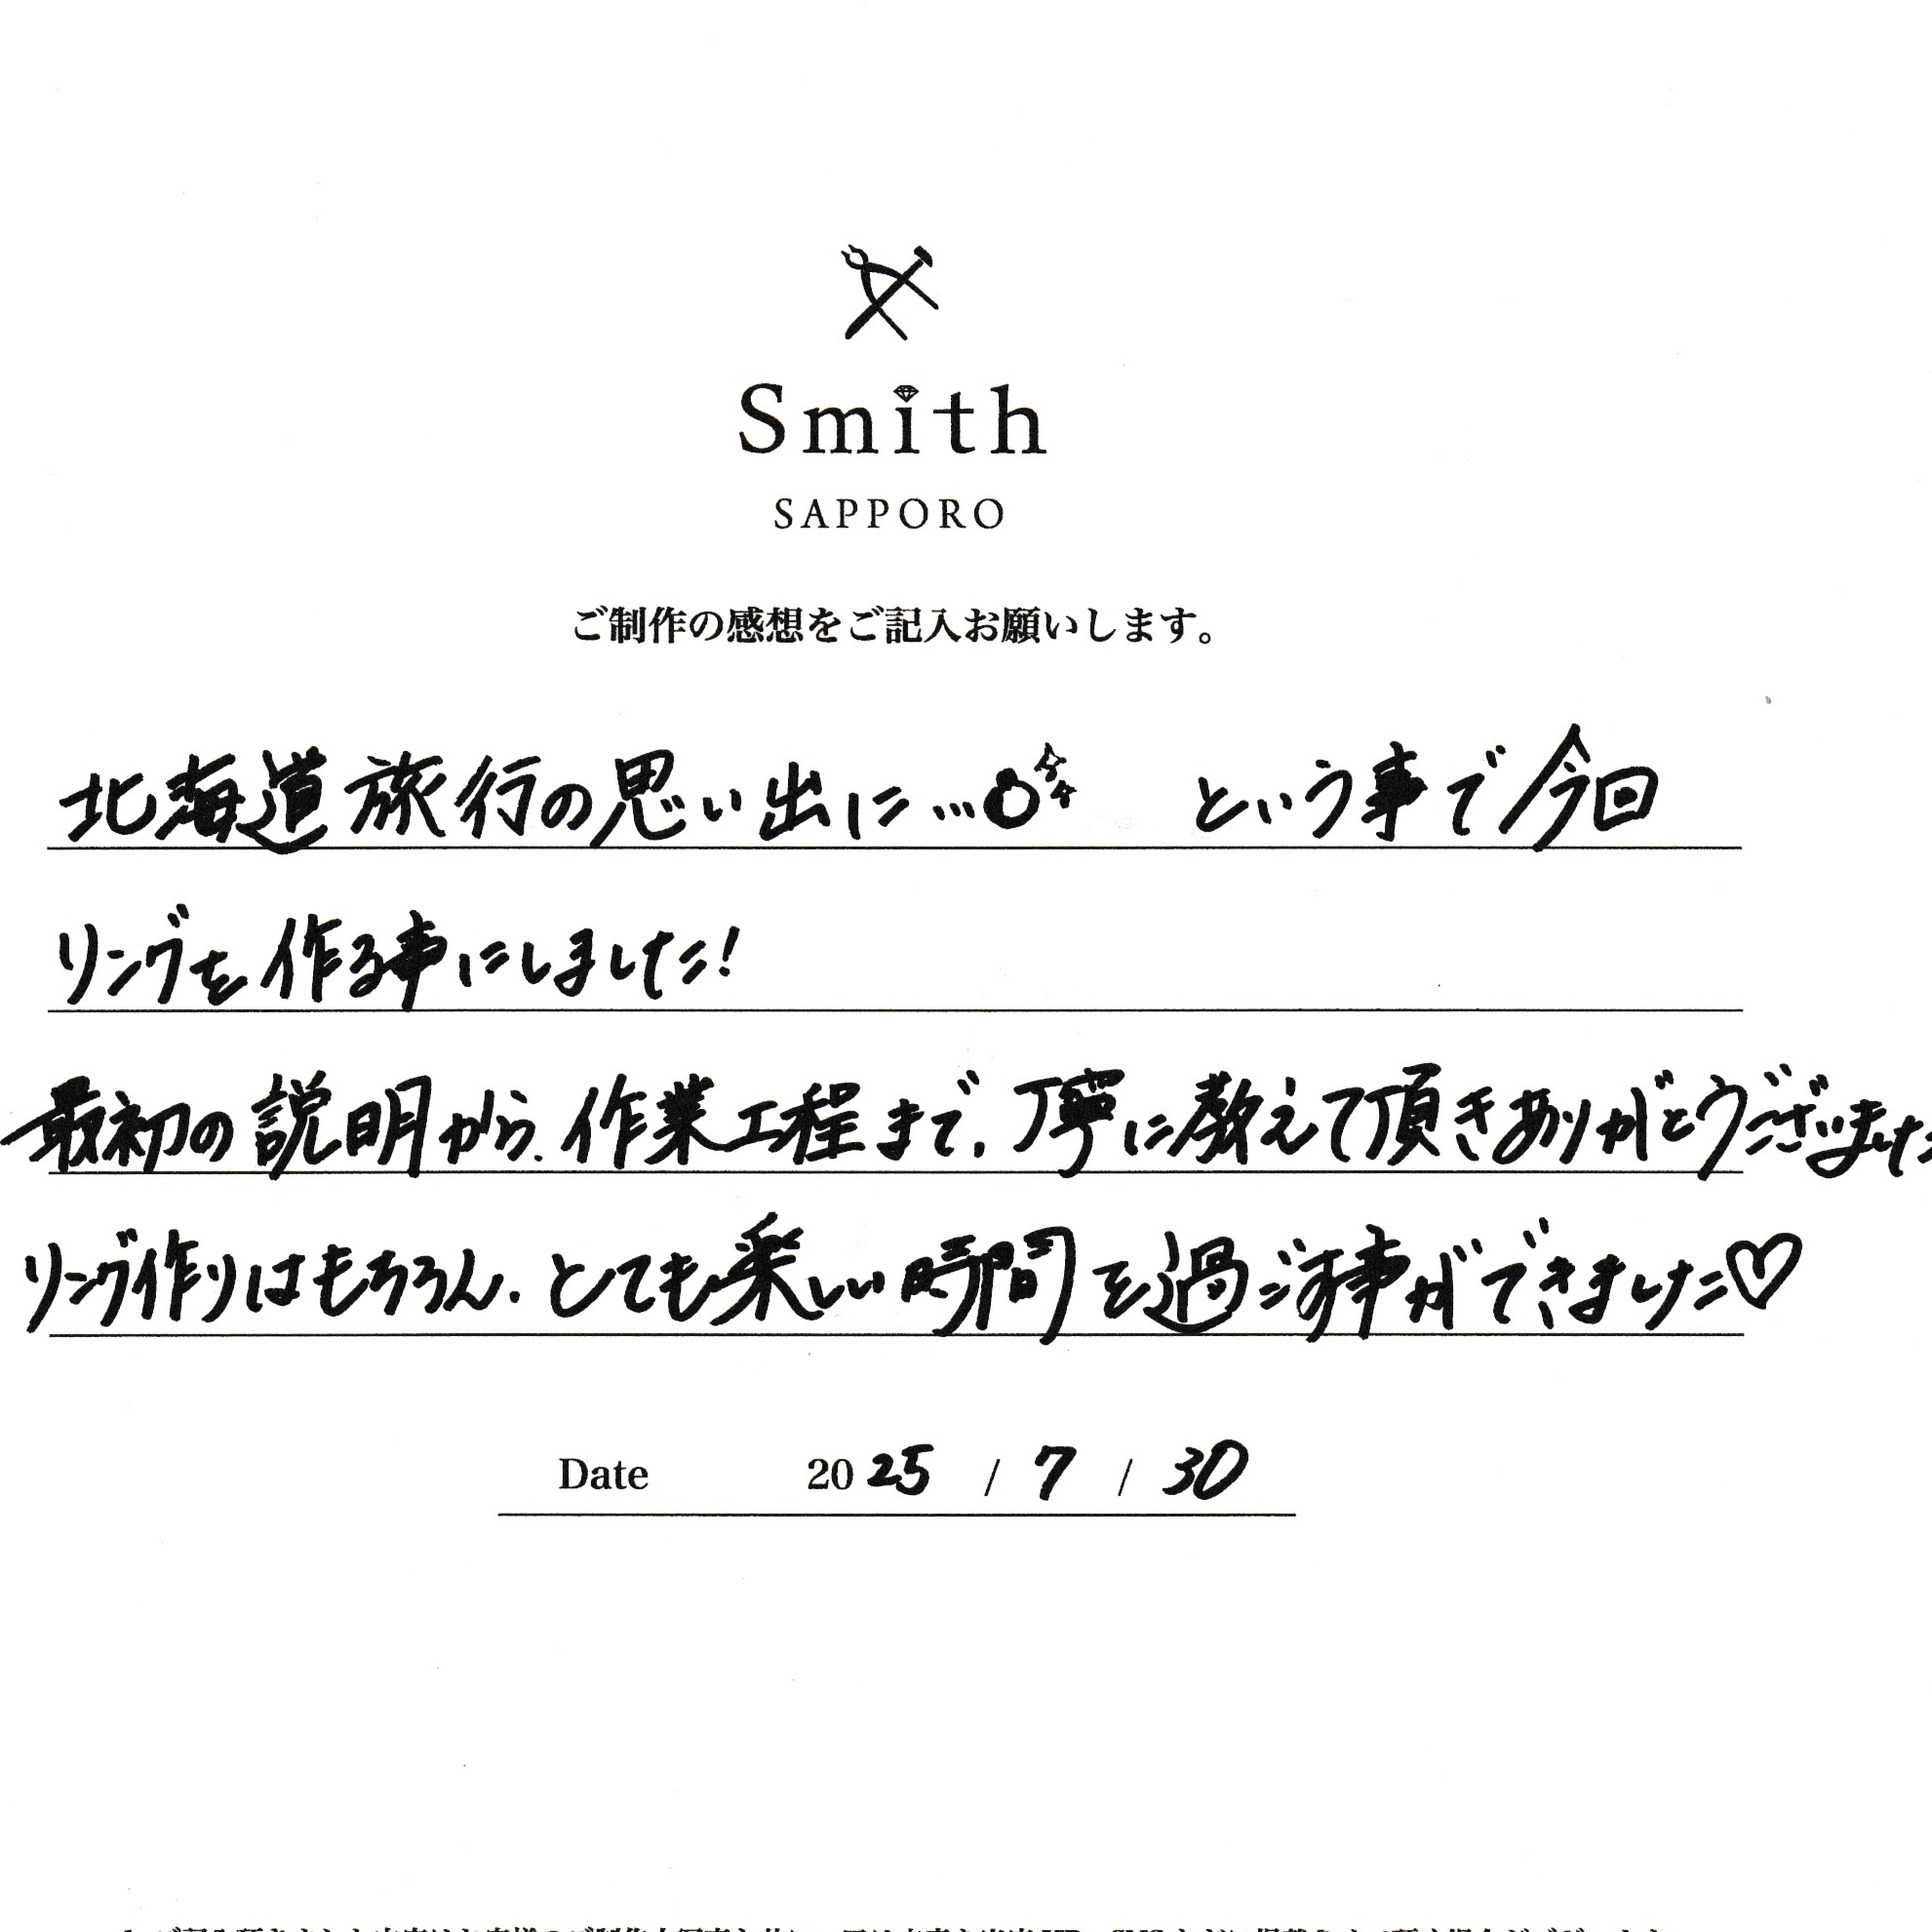 Smith
SAPPORO
ご制作の感想をご記入お願いします。
北海道旅行の思い出に… という事で今回
リングを作る事にしました!
最初の説明から、作業工程まで、丁寧に教えて頂きありがとうございました
リング作りはもちろん、とても楽しい時間を過ごす事ができました♡
Date 2025 / 7 / 30